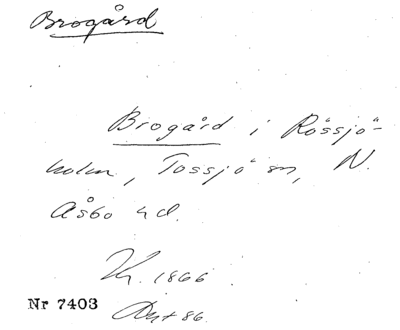 Brogård
Brogård i Rössjö-
holm, Tossjö sn, N.
Åsbo hd.
1866
Nr 7403
86.